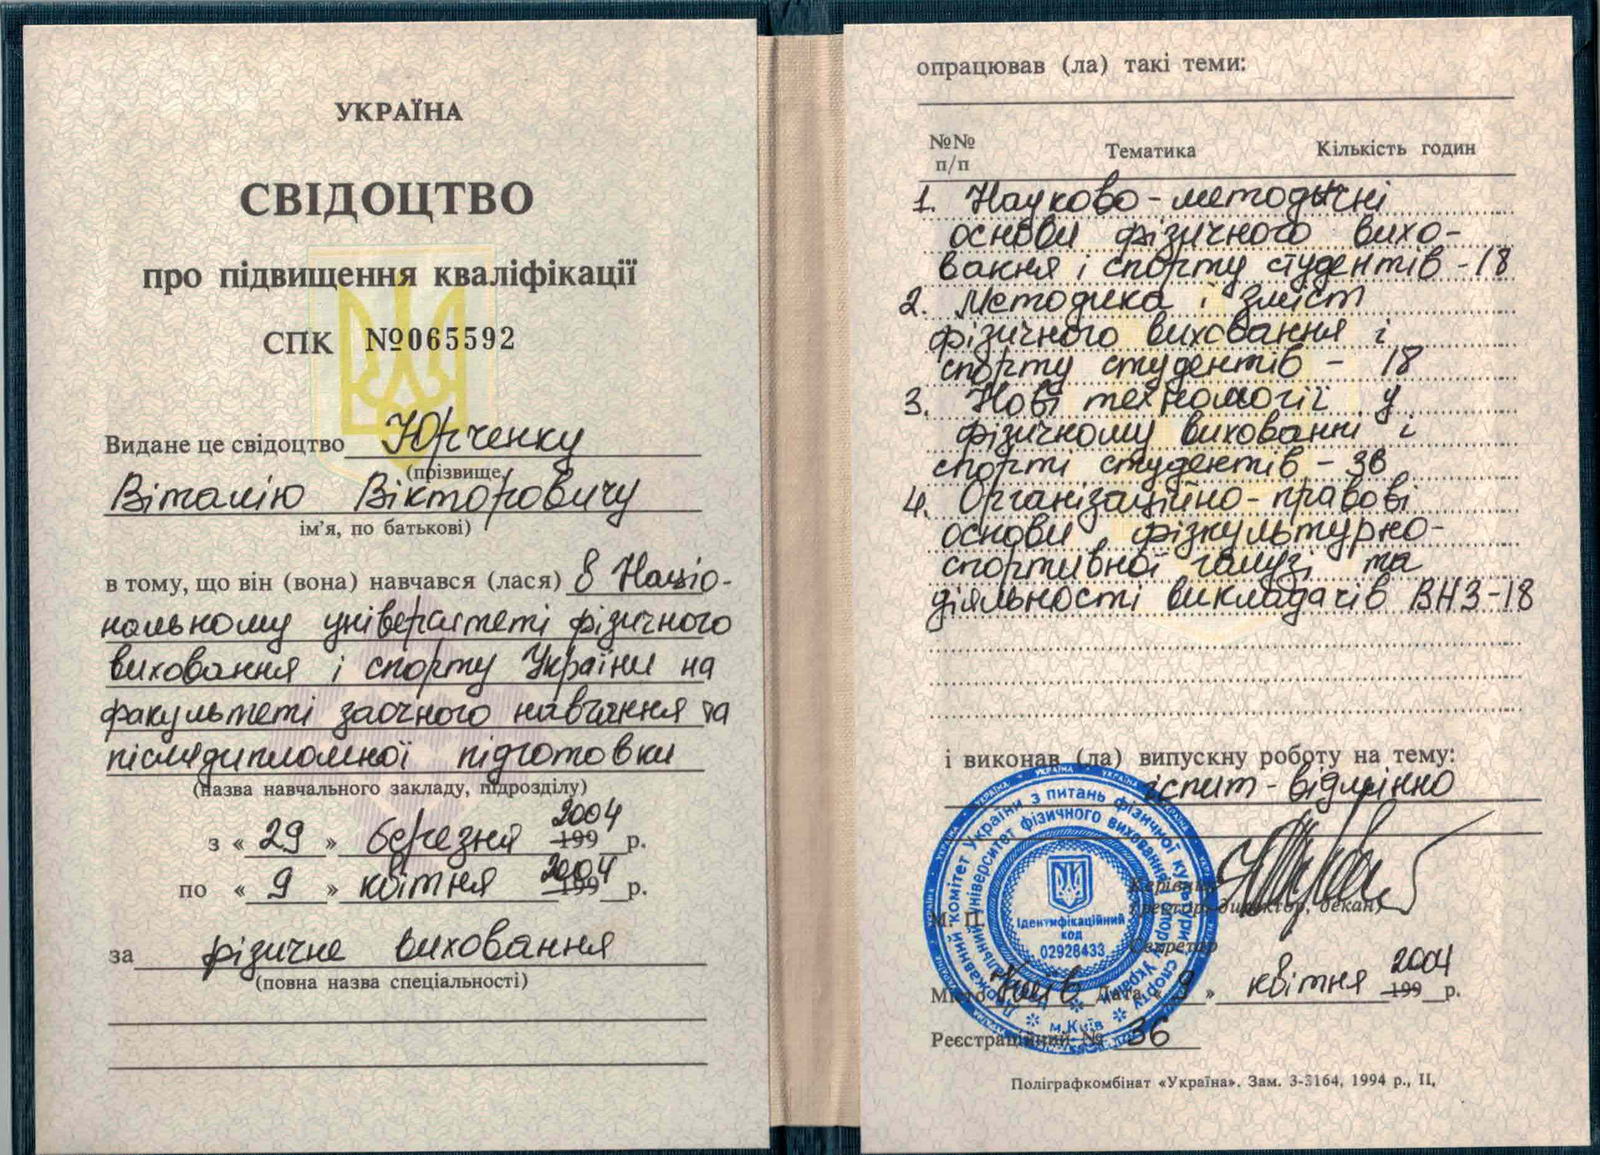 УКРАЇНА
СВІДОЦТВО
про підвищення кваліфікації
СПК №065592
Видане це свідоцтво Юрченку
(прізвище,
Віталію Вікторовичу
ім’я, по батькові)
в тому, що він (вона) навчався (лася) в Націо-
нальному університеті фізичного
виховання і спорту України на
факультеті заочного навчання та
післядипломної підготовки
(назва навчального закладу, підрозділу)
з « 29 » березня 199 2004 р.
по « 9 » квітня 199 2004 р.
за фізичне виховання
(повна назва спеціальності)
опрацював (ла) такі теми:
№№ п/п Тематика Кількість годин
1. Науково-методичні
основи фізичного вихо-
вання і спорту студентів - 18
2. Методика і зміст
фізичного виховання і
спорту студентів - 18
3. Нові технології у
фізичному вихованні і
спорті студентів - 36
4. Організаційно-правові
основи фізкультурно-
спортивної галузі та
діяльності викладачів ВНЗ-18
і виконав (ла) випускну роботу на тему:
іспит - відмінно
Керівник
М. П. (ректор, директор, декан)
Секретар
Місто Київ Дата « 9 » квітня 199 2004 р.
Реєстраційний № 36
Ідентифікаційний
код
02928433
м.Київ
Поліграфкомбінат «Україна». Зам. 3-3164, 1994 р., ІІ,